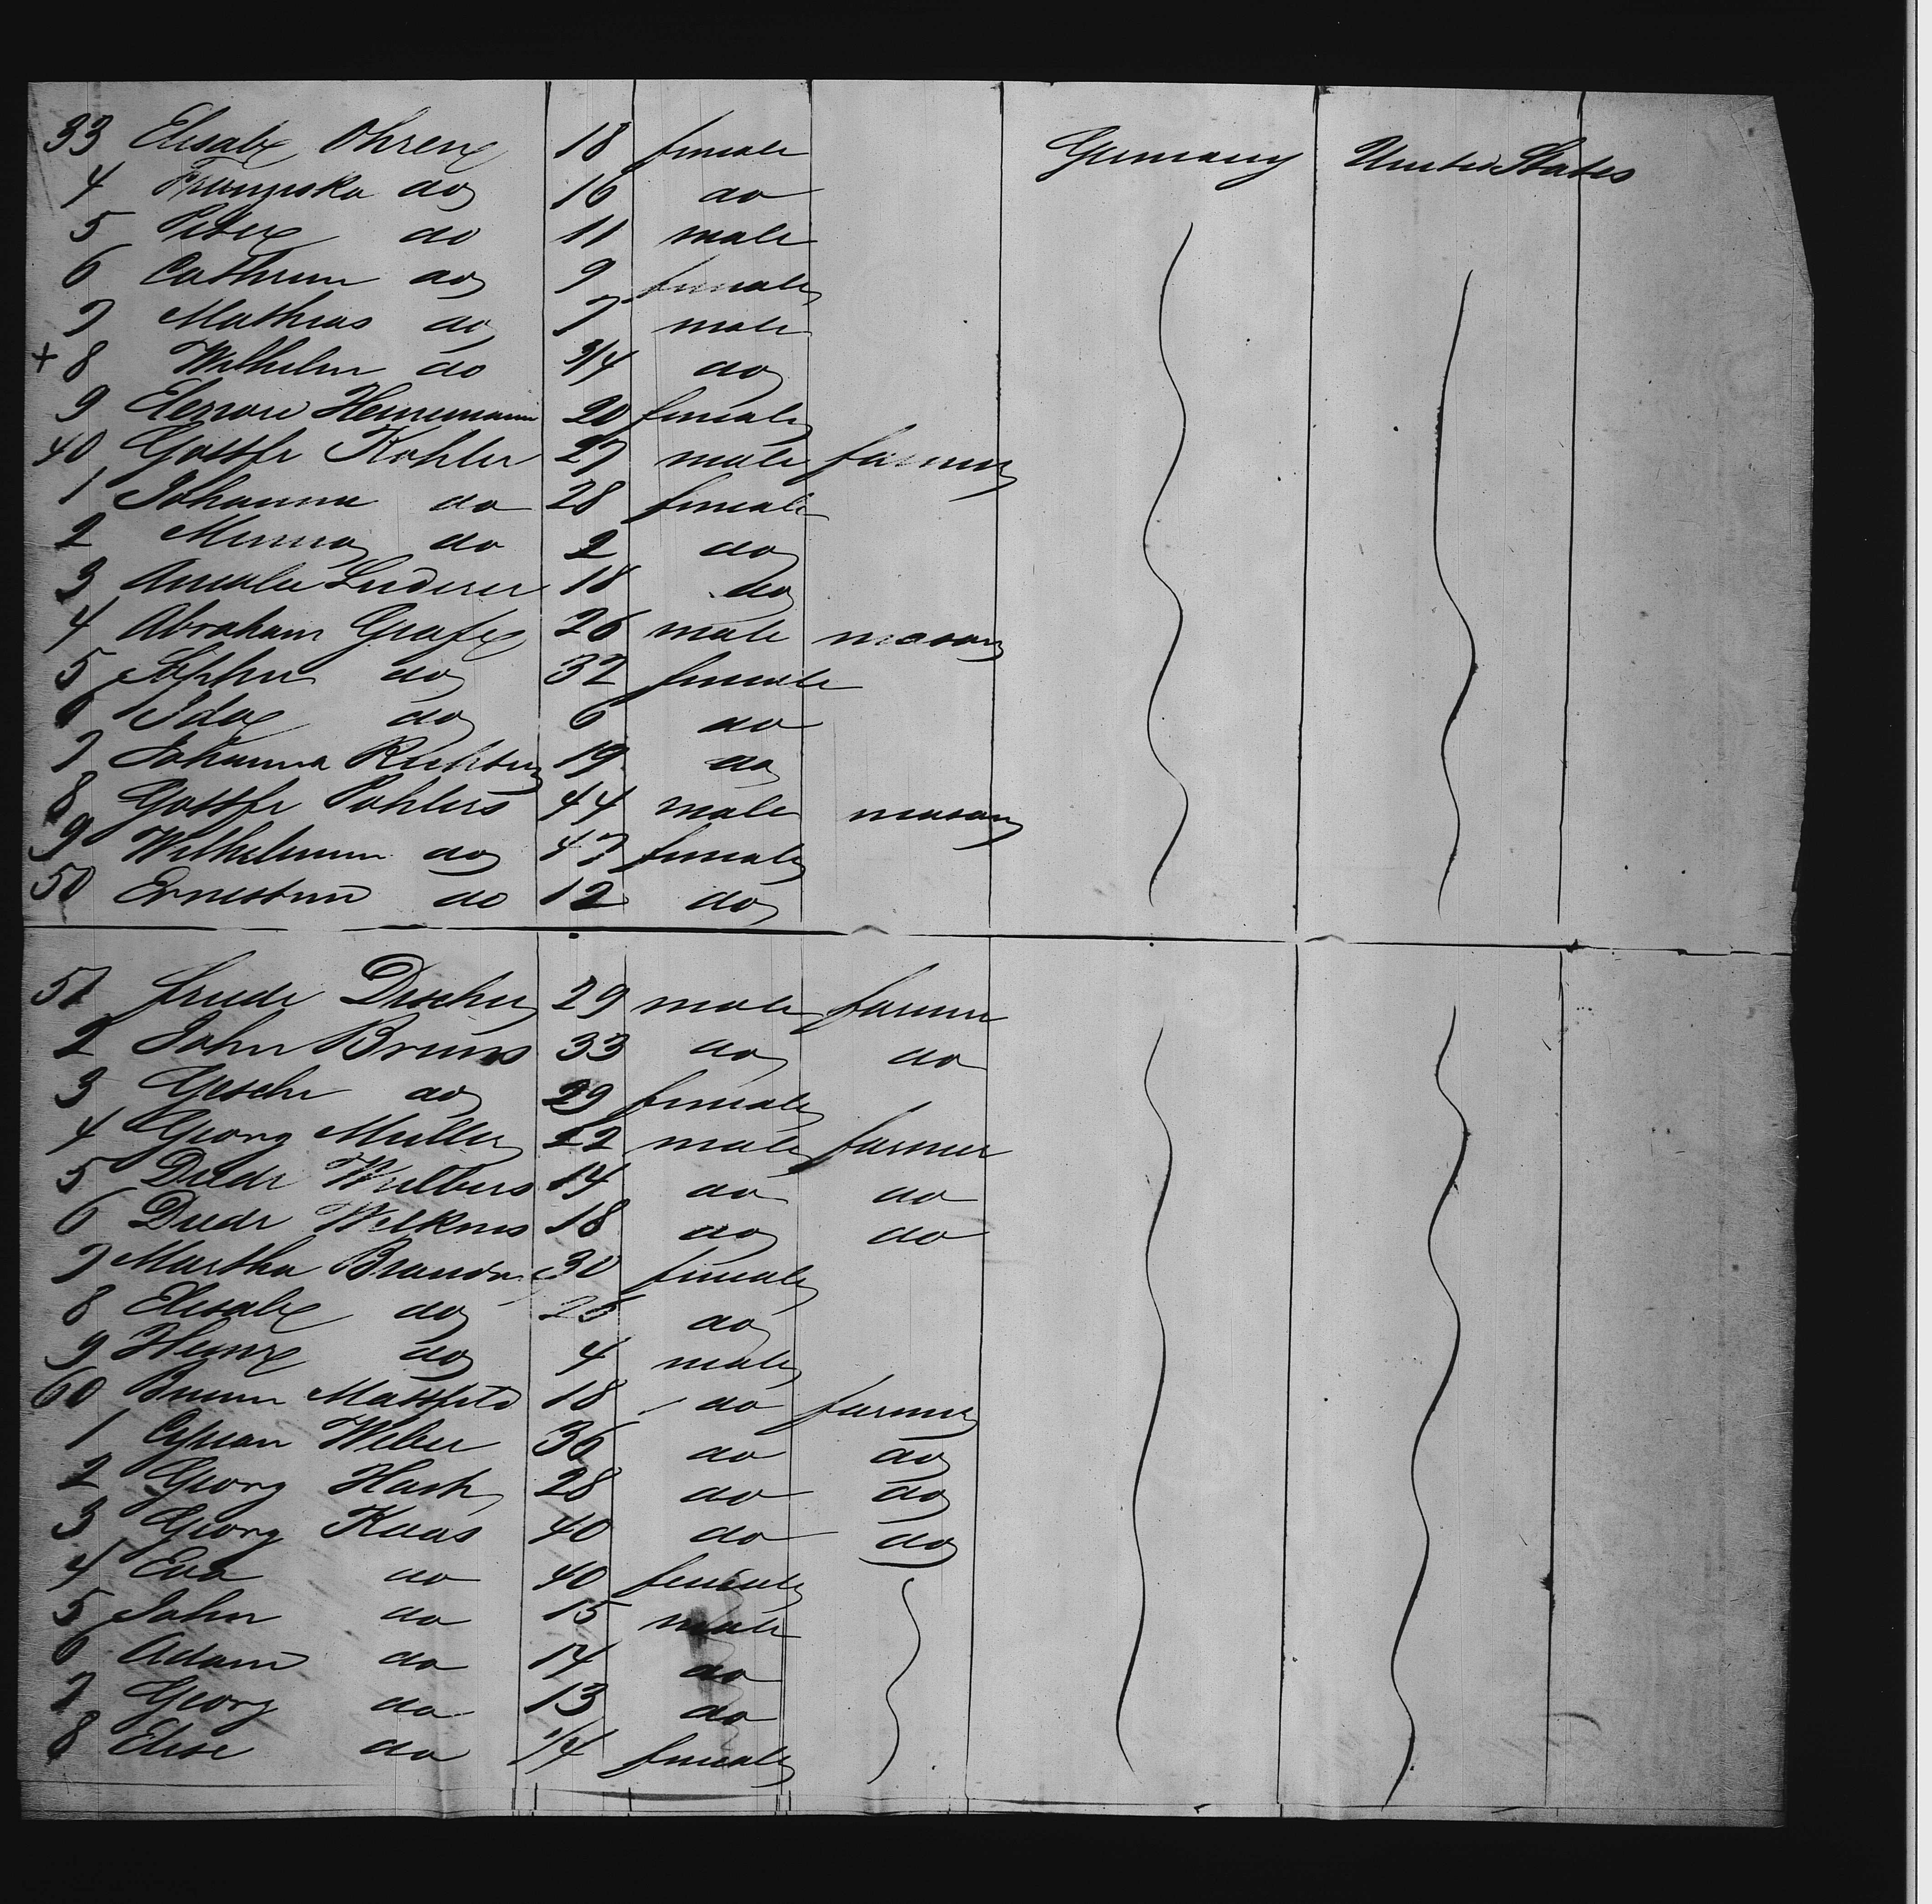 33 Elisabe Ohrene 18 female Germany United States
4 Franziska do 16 do
5 Peter do 11 male
6 Cathrin do 9 female
7 Mathias do 7 male
+ 8 Wilhelm do 3/4 do
9 Elenore Heinemann 20 female
40 Gottfr Kohler 27 male farmer
1 Johanna do 28 female
2 Minna do 2 do
3 Amalie Luderer 18 do
4 Abraham Grafe 26 male mason
5 Sophie do 32 female
6 Ida do 6 do
7 Johanna Richter 19 do
8 Gottfr Pohlers 44 male mason
9 Wilhelmin do 47 female
50 Ernestin do 12 do
51 friedr Discher 29 male farmer
2 John Bruns 33 do do
3 Gesche do 29 female
4 Georg Muller 22 male farmer
5 Diedr Wulbers 14 do do
6 Diedr Wilkens 18 do do
7 Martha 30 female
8 Elisabe do do
9 Heinr do 4 male
60 18 do farmer
1 Weber 36 do do
2 Georg 28 do do
3 Georg Haas 40 do do
4 Eva do 40 female
5 John do 15 male
6 Adam do 14 do
7 Georg do 13 do
8 Elise do 1/4 female